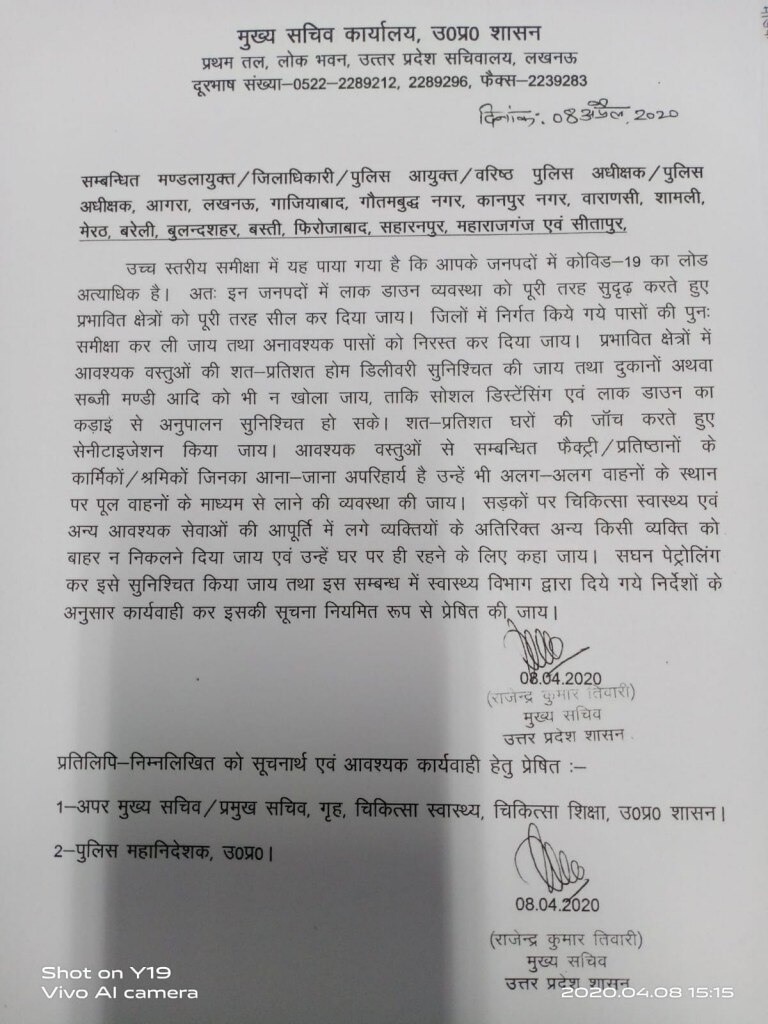 मुख्य सचिव कार्यालय, उ0प्र0 शासन
प्रथम तल, लोक भवन, उत्तर प्रदेश सचिवालय, लखनऊ
दूरभाष संख्या–0522–2289212, 2289296, फैक्स–2239283
दिनांक:. 08 अप्रैल, 2020
सम्बन्धित मण्डलायुक्त/जिलाधिकारी/पुलिस आयुक्त/वरिष्ठ पुलिस अधीक्षक/पुलिस
अधीक्षक, आगरा, लखनऊ, गाजियाबाद, गौतमबुद्ध नगर, कानपुर नगर, वाराणसी, शामली,
मेरठ, बरेली, बुलन्दशहर, बस्ती, फिरोजाबाद, सहारनपुर, महाराजगंज एवं सीतापुर,
उच्च स्तरीय समीक्षा में यह पाया गया है कि आपके जनपदों में कोविड–19 का लोड
अत्याधिक है। अतः इन जनपदों में लाक डाउन व्यवस्था को पूरी तरह सुदृढ़ करते हुए
प्रभावित क्षेत्रों को पूरी तरह सील कर दिया जाय। जिलों में निर्गत किये गये पासों की पुनः
समीक्षा कर ली जाय तथा अनावश्यक पासों को निरस्त कर दिया जाय। प्रभावित क्षेत्रों में
आवश्यक वस्तुओं की शत–प्रतिशत होम डिलीवरी सुनिश्चित की जाय तथा दुकानों अथवा
सब्जी मण्डी आदि को भी न खोला जाय, ताकि सोशल डिस्टेंसिंग एवं लाक डाउन का
कड़ाई से अनुपालन सुनिश्चित हो सके। शत–प्रतिशत घरों की जॉच करते हुए
सेनीटाइजेशन किया जाय। आवश्यक वस्तुओं से सम्बन्धित फैक्ट्री/प्रतिष्ठानों के
कार्मिकों/श्रमिकों जिनका आना–जाना अपरिहार्य है उन्हें भी अलग–अलग वाहनों के स्थान
पर पूल वाहनों के माध्यम से लाने की व्यवस्था की जाय। सड़कों पर चिकित्सा स्वास्थ्य एवं
अन्य आवश्यक सेवाओं की आपूर्ति में लगे व्यक्तियों के अतिरिक्त अन्य किसी व्यक्ति को
बाहर न निकलने दिया जाय एवं उन्हें घर पर ही रहने के लिए कहा जाय। सघन पेट्रोलिंग
कर इसे सुनिश्चित किया जाय तथा इस सम्बन्ध में स्वास्थ्य विभाग द्वारा दिये गये निर्देशों के
अनुसार कार्यवाही कर इसकी सूचना नियमित रूप से प्रेषित की जाय।
08.04.2020
(राजेन्द्र कुमार तिवारी)
मुख्य सचिव
उत्तर प्रदेश शासन
प्रतिलिपि–निम्नलिखित को सूचनार्थ एवं आवश्यक कार्यवाही हेतु प्रेषित :–
1–अपर मुख्य सचिव/प्रमुख सचिव, गृह, चिकित्सा स्वास्थ्य, चिकित्सा शिक्षा, उ0प्र0 शासन।
2–पुलिस महानिदेशक, उ0प्र0।
08.04.2020
(राजेन्द्र कुमार तिवारी)
मुख्य सचिव
उत्तर प्रदेश शासन
Shot on Y19
Vivo AI camera
2020.04.08 15:15